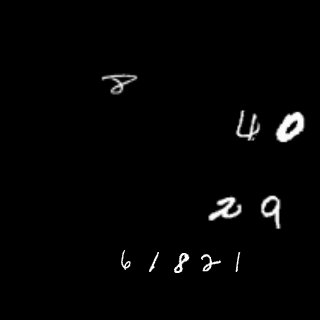 8
40
29
61821